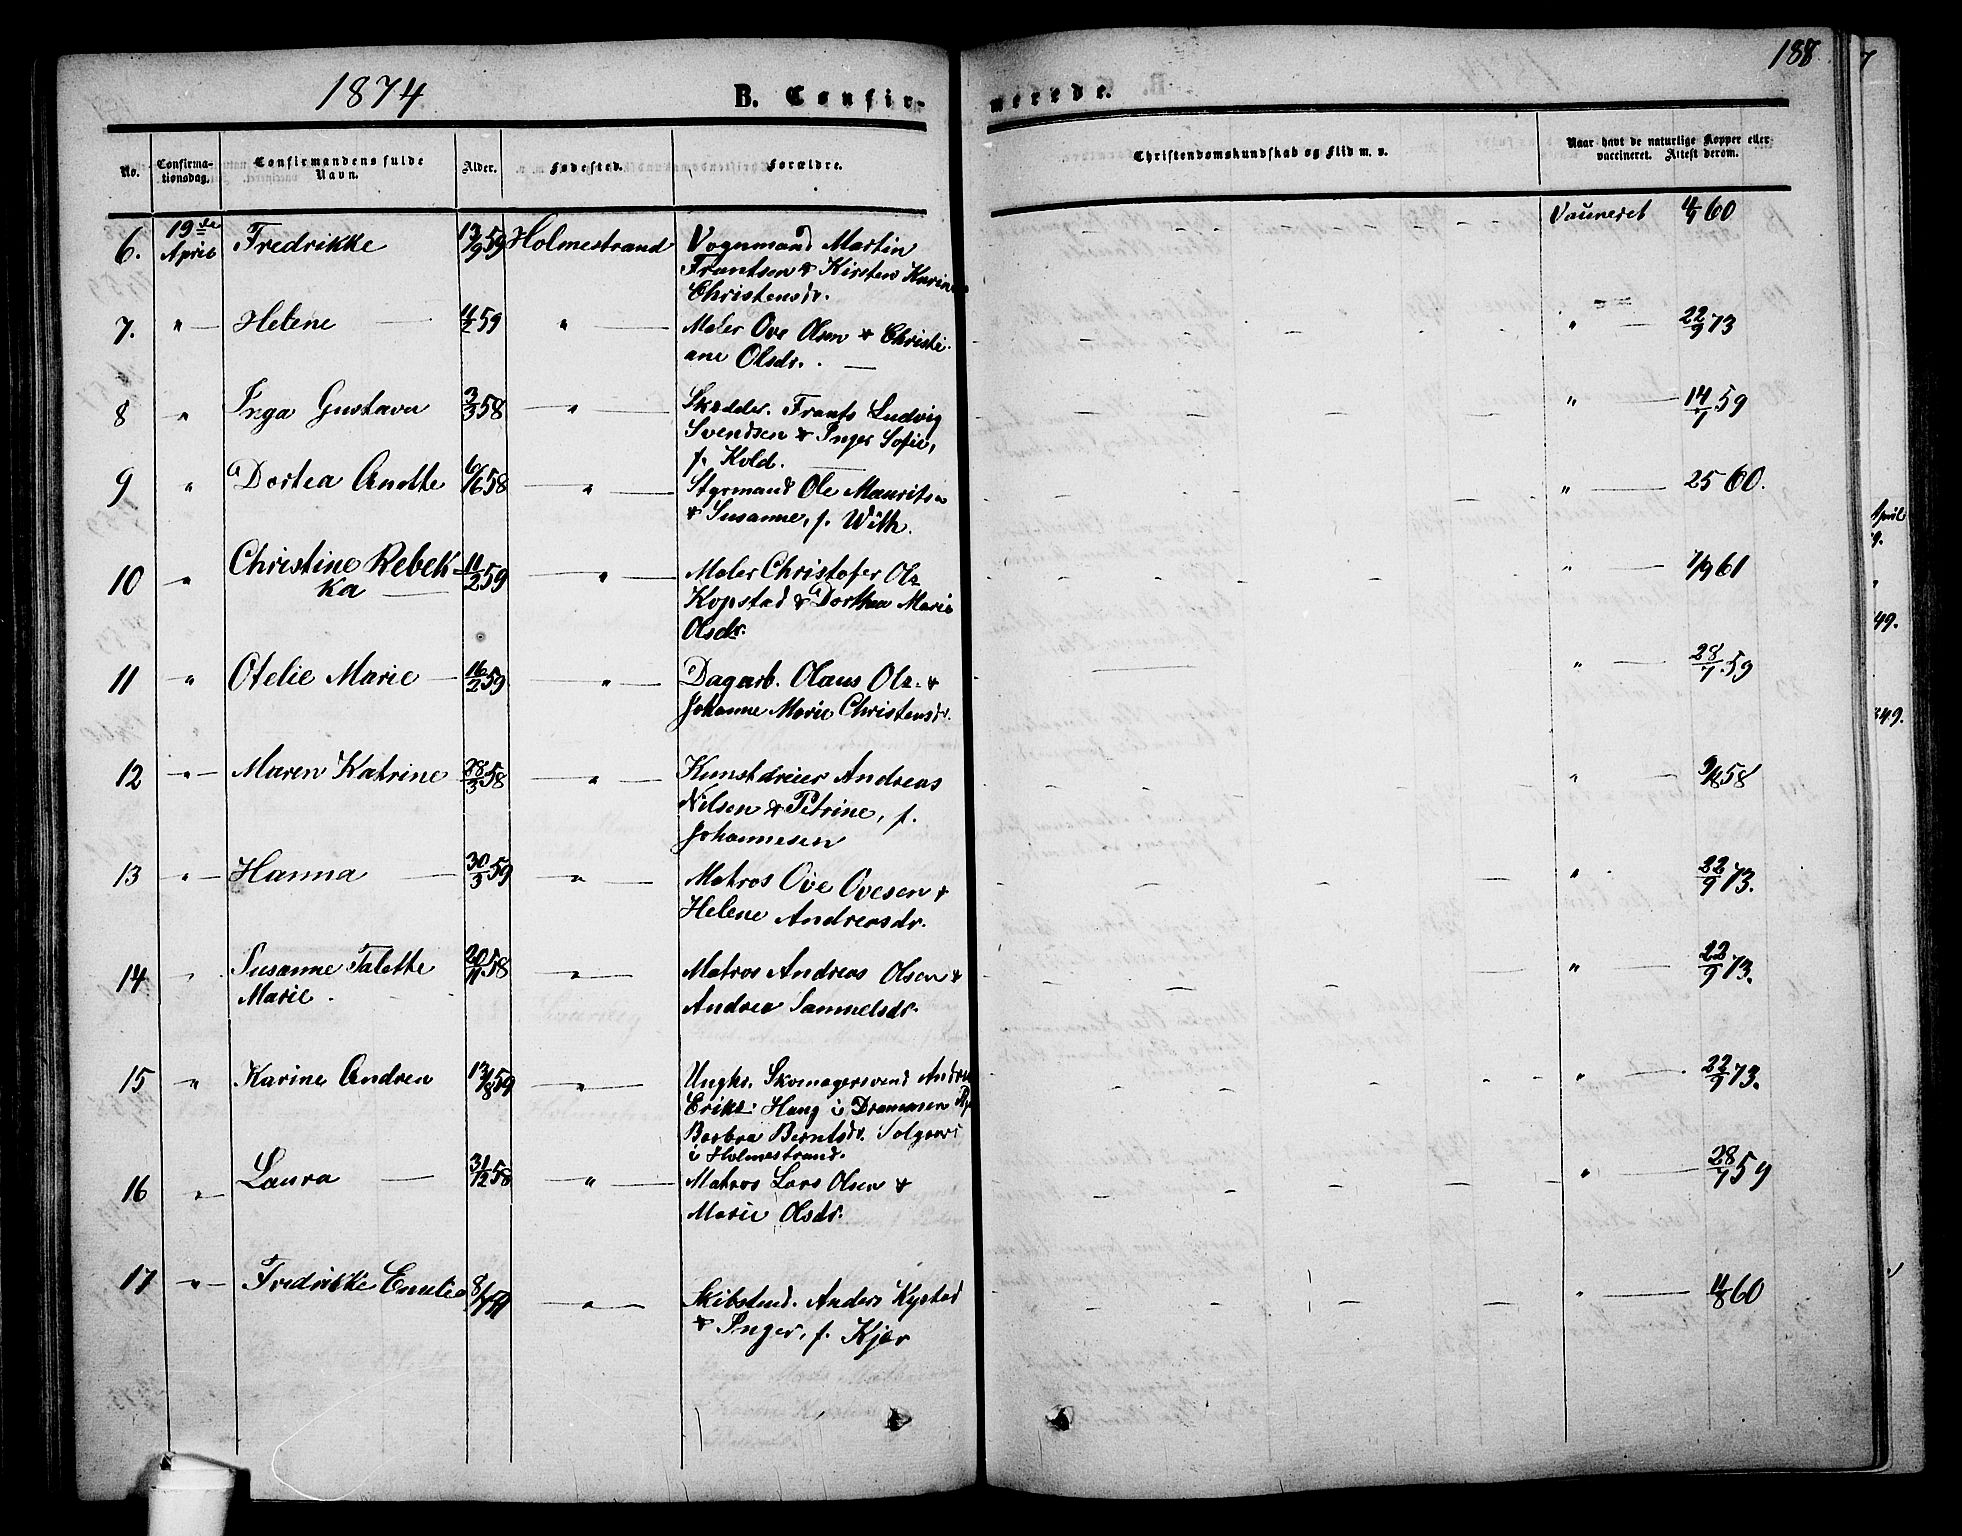 1874
B. Confir-
merede.
188
No.
Confirma-
tionsdag.
Confirmandens fulde
Navn.
Alder.
Fødested.
Forældre.
Christendomskundskab og Flid m. v.
Naar havt de naturlige Kopper eller
vaccineret. Attest derom.
6. 19de April Fredrikke 13/9 59 Holmestrand Vognmand Martin Vaccineret 4/9 60
Frantsen & Kirsten Karine
Christensdr.
7. " — Helene — 11/2 59 " — Maler Ove Olsen & Christi- " — 22/9 73
ane Olsdr. . —
8 " Inga Gustava 3/3 58 — " — Skrædder. Frants Ludvig " — 14/7 59
Svendsen & Inger Sofie,
f. Kold.
9 " Dortea Anette 6/6 58 — " — Styrmand Ole Mauritsen " — 25 60.
& Susanne, f. With.
10 " Christine Rebek- 11/2 59 — " — Maler Christofer Ols. " — 1/9 61
ka — Kopstad & Dorthea Marie
Olsdr.
11 " Otelie Marie — 16/2 59 " — Dagarb. Olaus Ols. & " — 28/7 59
Johanne Marie Christensdr.
12 " — Maren Katrine 28/3 58 — " — Kunstdreier Andreas " — 9/8 58
Nilsen & Petrine, f.
Johannesen
13 " — Hanna — 30/3 59 — " — Matros Ove Ovesen & " 22/9 73.
Helene Andreasdr.
14 " Susanne Talette 20/11 58 — " — Matros Andreas Olsen & " — 22/9 73.
Marie . Andrea Samuelsdr.
15 " — Karine Andrea 13/8 59 — " — Ungk. Skomagersvend Andr " — 22/9 73.
Eriks. Haug i Drammen
Barbra Berntsdr. Solgaard
i Holmestrand.
16 " — Laura — 31/12 58 — " — Matros Lars Olsen & " — 28/7 59
Marie Olsdr.
17 " — Fredrikke Emelie 8/7 59 — " — Skibstmd. Anders Kystad " — 11/8 60
& Inger, f. Kjær
April
9.
49.
349.